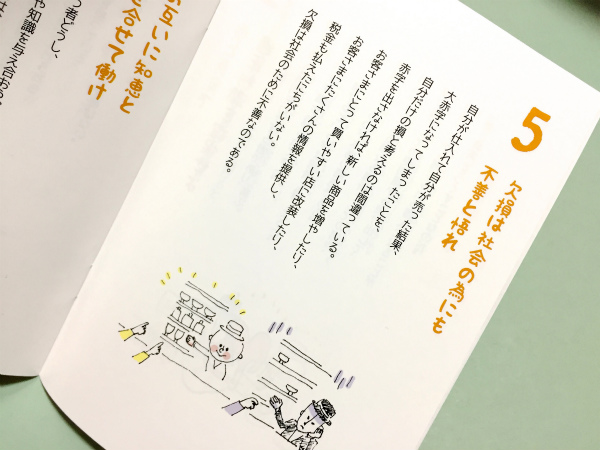 5
欠損は社会の為にも
不善と悟れ
自分が仕入れて自分が売った結果、
大赤字になってしまったことを、
自分だけの損と考えるのは間違っている。
赤字を出さなければ、新しい商品を増やしたり、
お客さまにとって買いやすい店に改装したり、
お客さまにたくさんの情報を提供し、
税金も払えたにちがいない。
欠損は社会のために不善なのである。
互いに知恵と
合せて働け
つ者どうし、
や知識を与え合おう